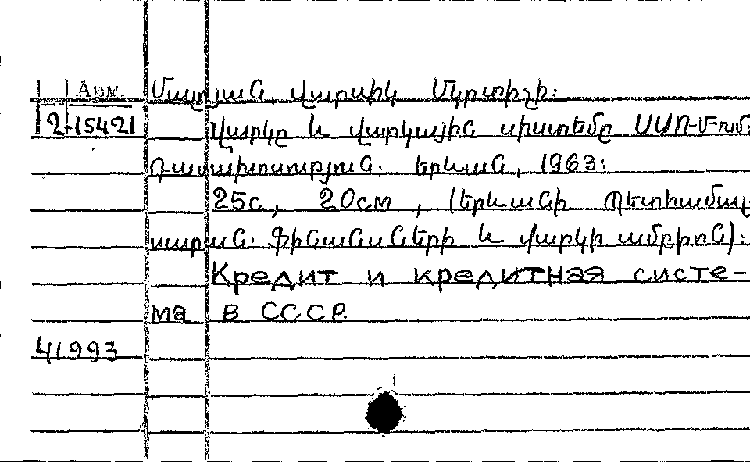 Арм.
Վարսիկ Մկրտիչի.
2-15421
Վարկը և վարկային սիստեմը ՍՍՌՄ-ում:
Դասախոսություն. Երևան, 1963:
25с, 20см, (Երևանի Պետհամալ-
սարան. Ֆինանսների և վարկի ամբիոն):
Кредит и кредитная систе-
ма в СССР.
41993